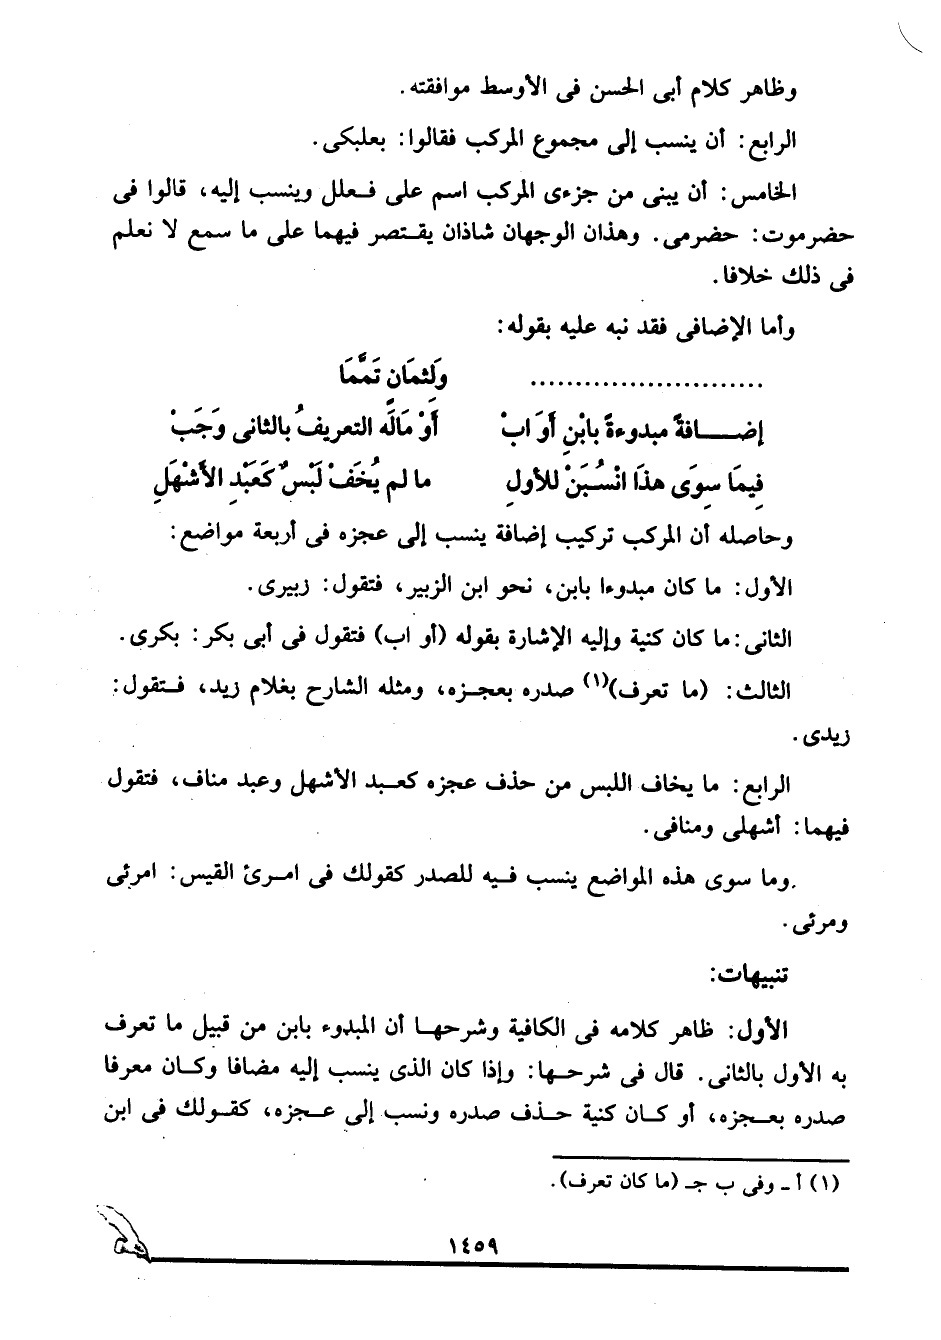 وظاهر كلام أبى الحسن فى الأوسط موافقته.
الرابع: أن ينسب إلى مجموع المركب فقالوا: بعلبكى.
الخامس: أن يبنى من جزءى المركب اسم على فعلل وينسب إليه، قالوا فى
حضرموت: حضرمى. وهذان الوجهان شاذان يقتصر فيهما على ما سمع لا نعلم
فى ذلك خلافا.
وأما الإضافى فقد نبه عليه بقوله:
.......................... وَلَثمَان تَمَّمَا
إضــــافةً مبدوءةً بابْنٍ أَوَ ابْ أوْ مَالَه التعريفُ بالثانى وَجَبْ
فِيمَا سِوَى هذَا انْسُبَنْ للأولِ ما لم يُخَفْ لَبْسٌ كَعَبْدِ الأَشْهَلِ
وحاصله أن المركب تركيب إضافة ينسب إلى عجزه فى أربعة مواضع:
الأول: ما كان مبدوءا بابن، نحو ابن الزبير، فتقول: زبيرى.
الثانى: ما كان كنية وإليه الإشارة بقوله (أو اب) فتقول فى أبى بكر: بكرى.
الثالث: (ما تعرف)(١) صدره بعجزه، ومثله الشارح بغلام زيد، فتقول:
زيدى.
الرابع: ما يخاف اللبس من حذف عجزه كعبد الأشهل وعبد مناف، فتقول
فيهما: أشهلى ومنافى.
وما سوى هذه المواضع ينسب فيه للصدر كقولك فى امرئ القيس: امرئى
ومرئى.
تنبيهات:
الأول: ظاهر كلامه فى الكافية وشرحها أن المبدوء بابن من قبيل ما تعرف
به الأول بالثانى. قال فى شرحها: وإذا كان الذى ينسب إليه مضافا وكان معرفا
صدره بعجزه، أو كان كنية حذف صدره ونسب إلى عجزه، كقولك فى ابن
(١) أ ـ وفى ب جـ (ما كان تعرف).
١٤٥٩